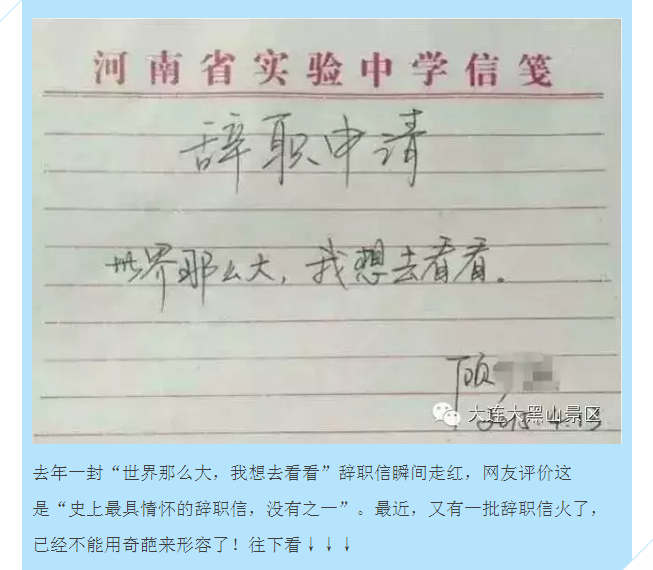 河南省实验中学信笺
辞职申请
世界那么大，我想去看看。
顾
大连大黑山景区
2015.4.13
去年一封“世界那么大，我想去看看”辞职信瞬间走红，网友评价这
是“史上最具情怀的辞职信，没有之一”。最近，又有一批辞职信火了，
已经不能用奇葩来形容了！往下看↓↓↓